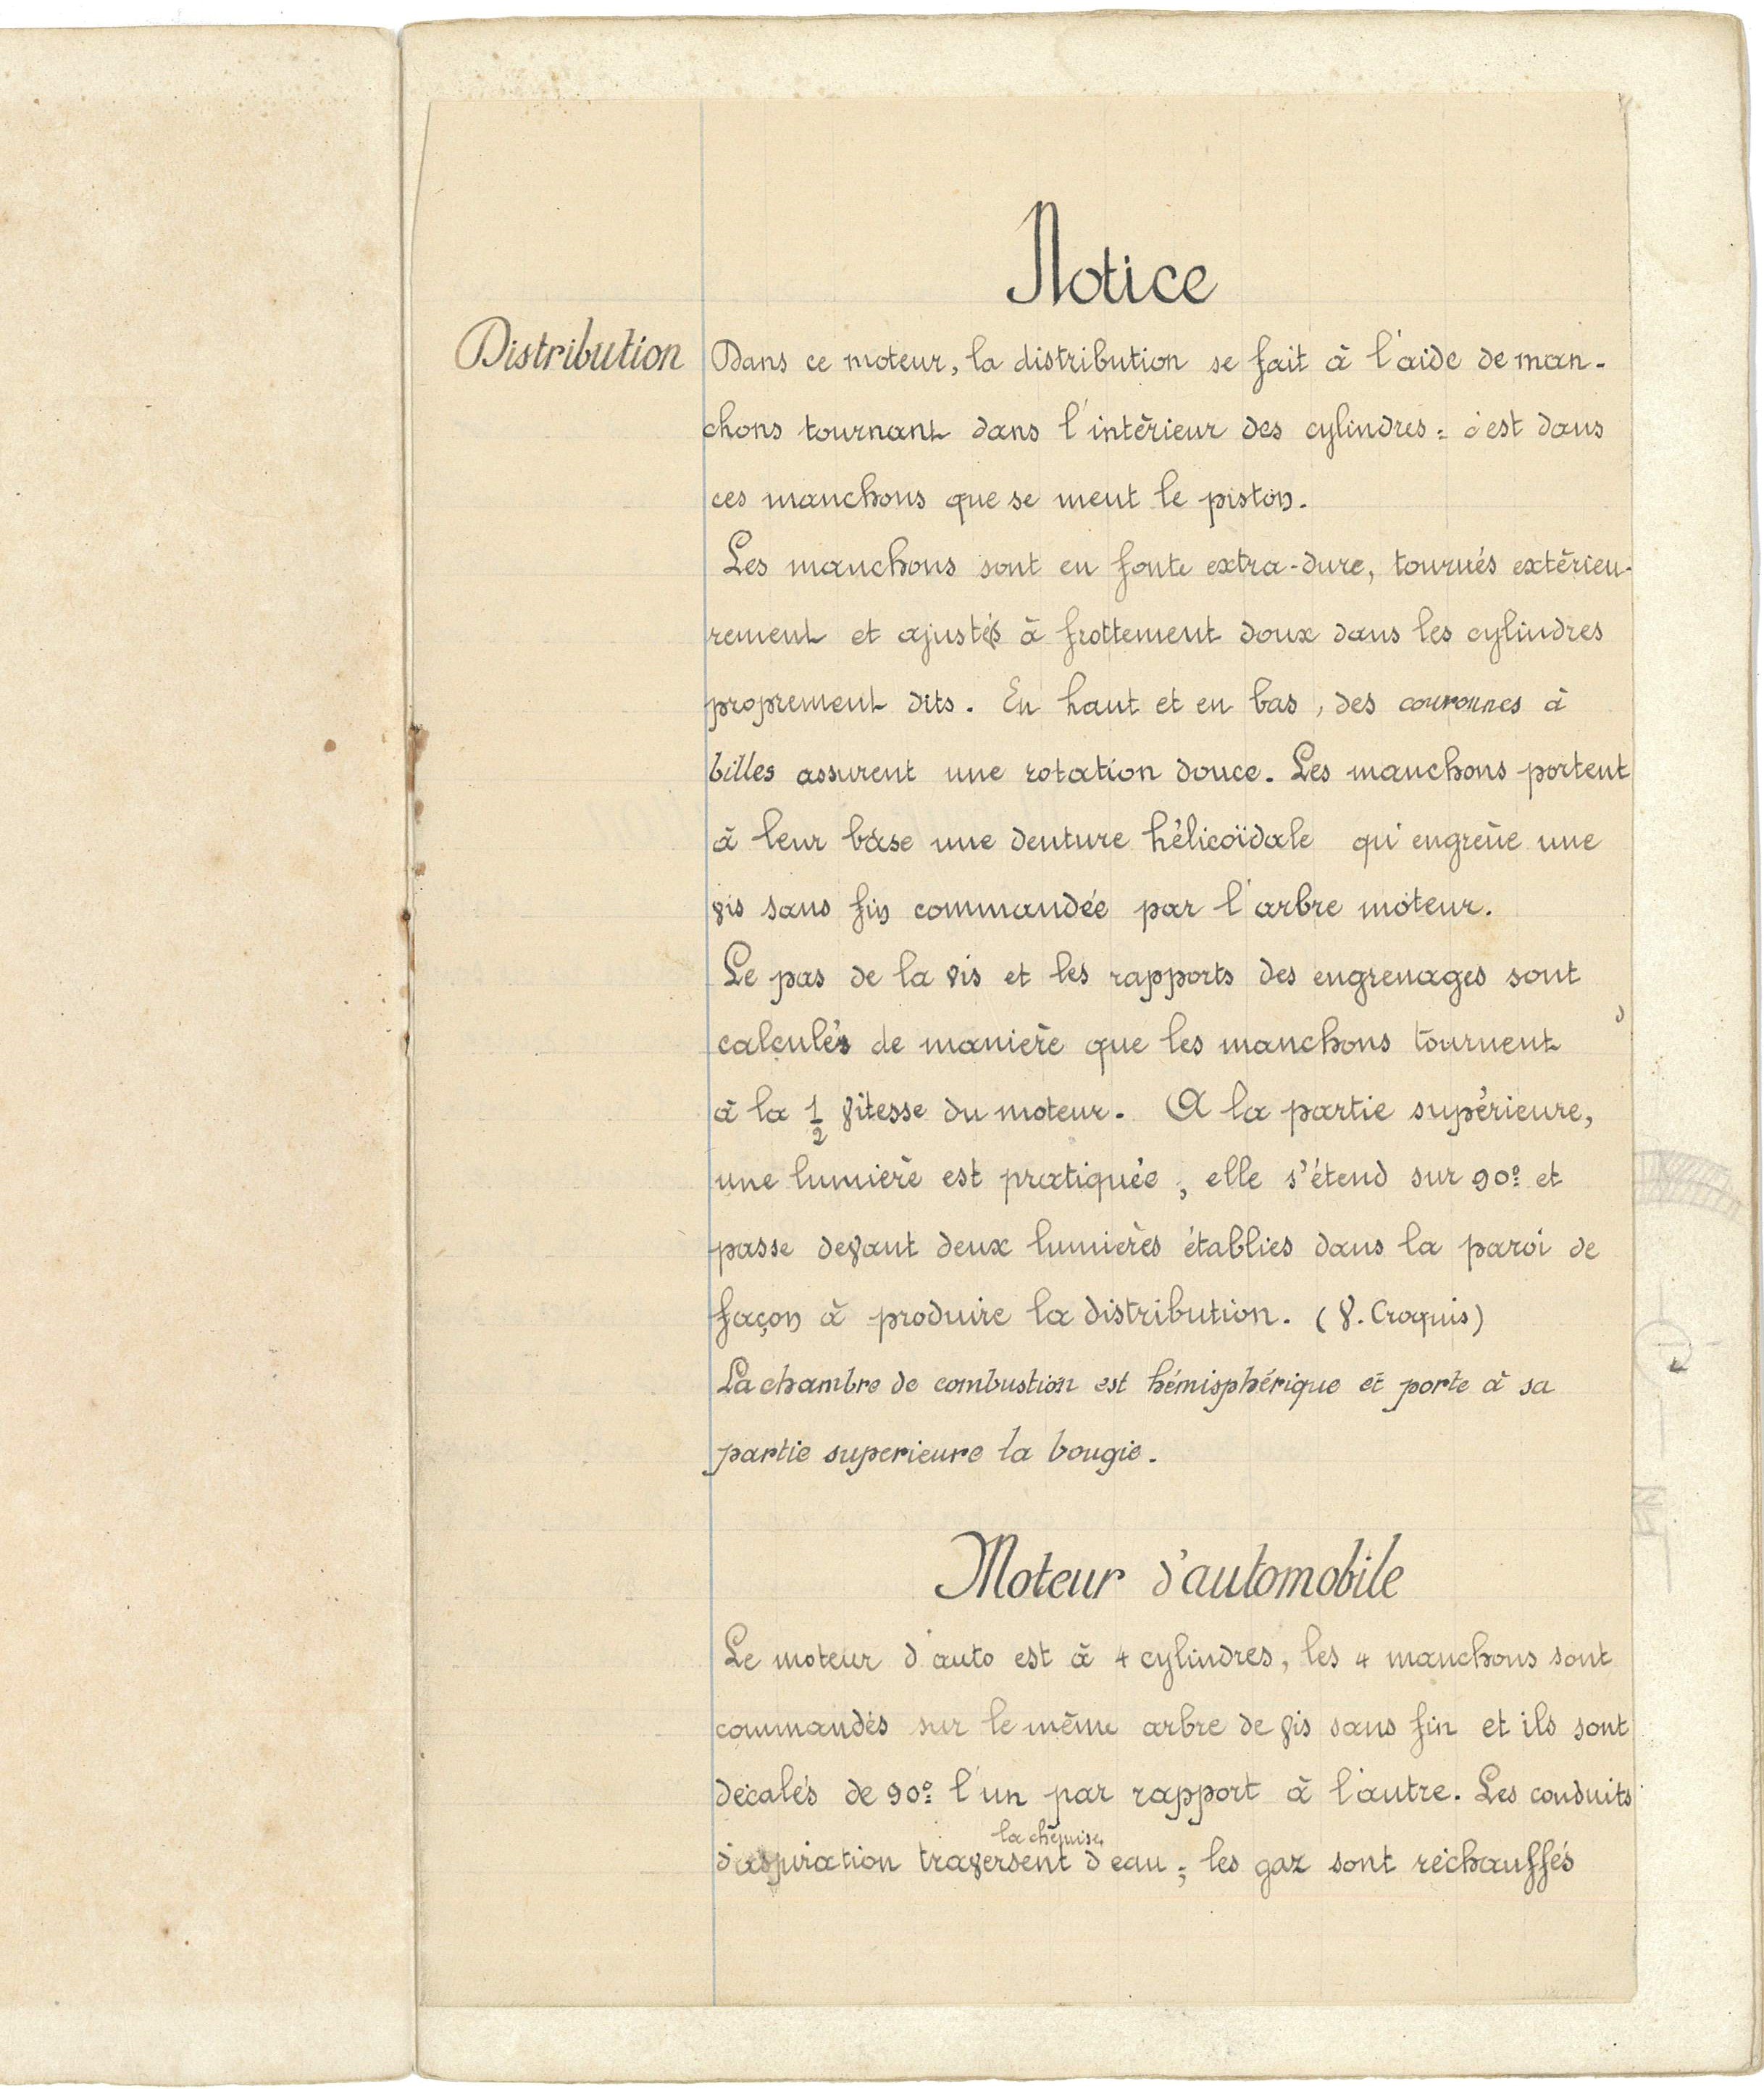 Notice
Distribution
Dans ce moteur, la distribution se fait à l'aide de man-
chons tournant dans l'intérieur des cylindres : c'est dans
ces manchons que se meut le piston.
Les manchons sont en fonte extra-dure, tournés extérieu-
rement et ajustés à frottement doux dans les cylindres
proprement dits. En haut et en bas, des couronnes à
billes assurent une rotation douce. Les manchons portent
à leur base une denture hélicoïdale qu'engrène une
vis sans fin commandée par l'arbre moteur.
Le pas de la vis et les rapports des engrenages sont
calculés de manière que les manchons tournent
à la 1/2 vitesse du moteur. A la partie supérieure,
une lumière est pratiquée ; elle s'étend sur 90° et
passe devant deux lumières établies dans la paroi de
façon à produire la distribution. (V. Croquis)
La chambre de combustion est hémisphérique et porte à sa
partie superieure la bougie.
Moteur d'automobile
Le moteur d'auto est à 4 cylindres, les 4 manchons sont
commandés sur le même arbre de vis sans fin et ils sont
décalés de 90° l'un par rapport à l'autre. Les conduits
la chemise
d'aspiration traversent d'eau ; les gaz sont réchauffés